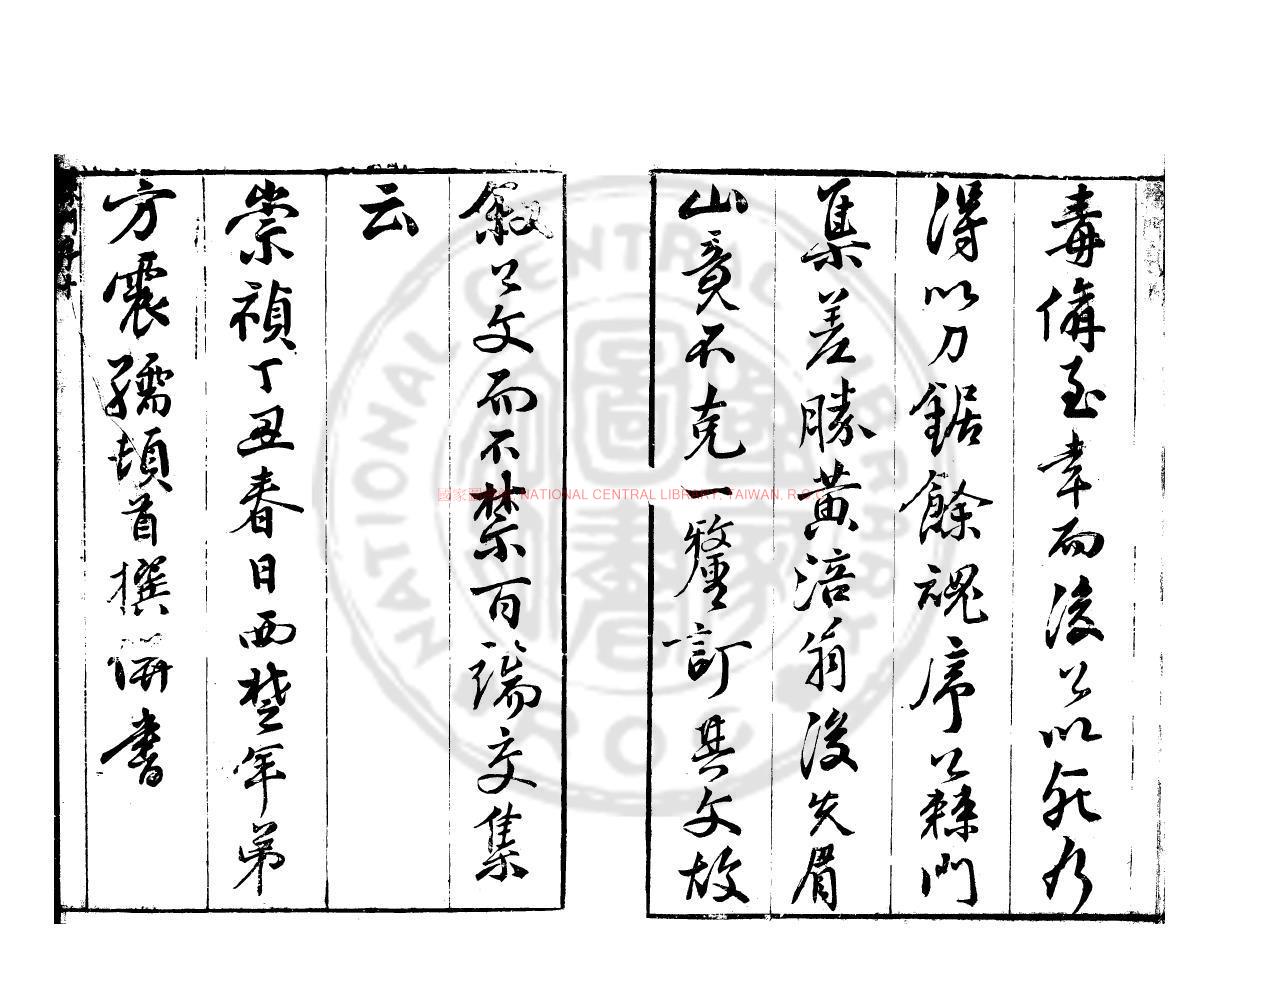 毒備至幸而後公以死
得以刀鋸餘魂序公棘門
集差勝黃涪翁後失眉
山竟不克一釐訂其文故
叙公文而不禁百端交集
云
崇禎丁丑春日西楚年弟
方震孺頓首撰併書
NATIONAL CENTRAL LIBRARY, TAIWAN, R.O.C